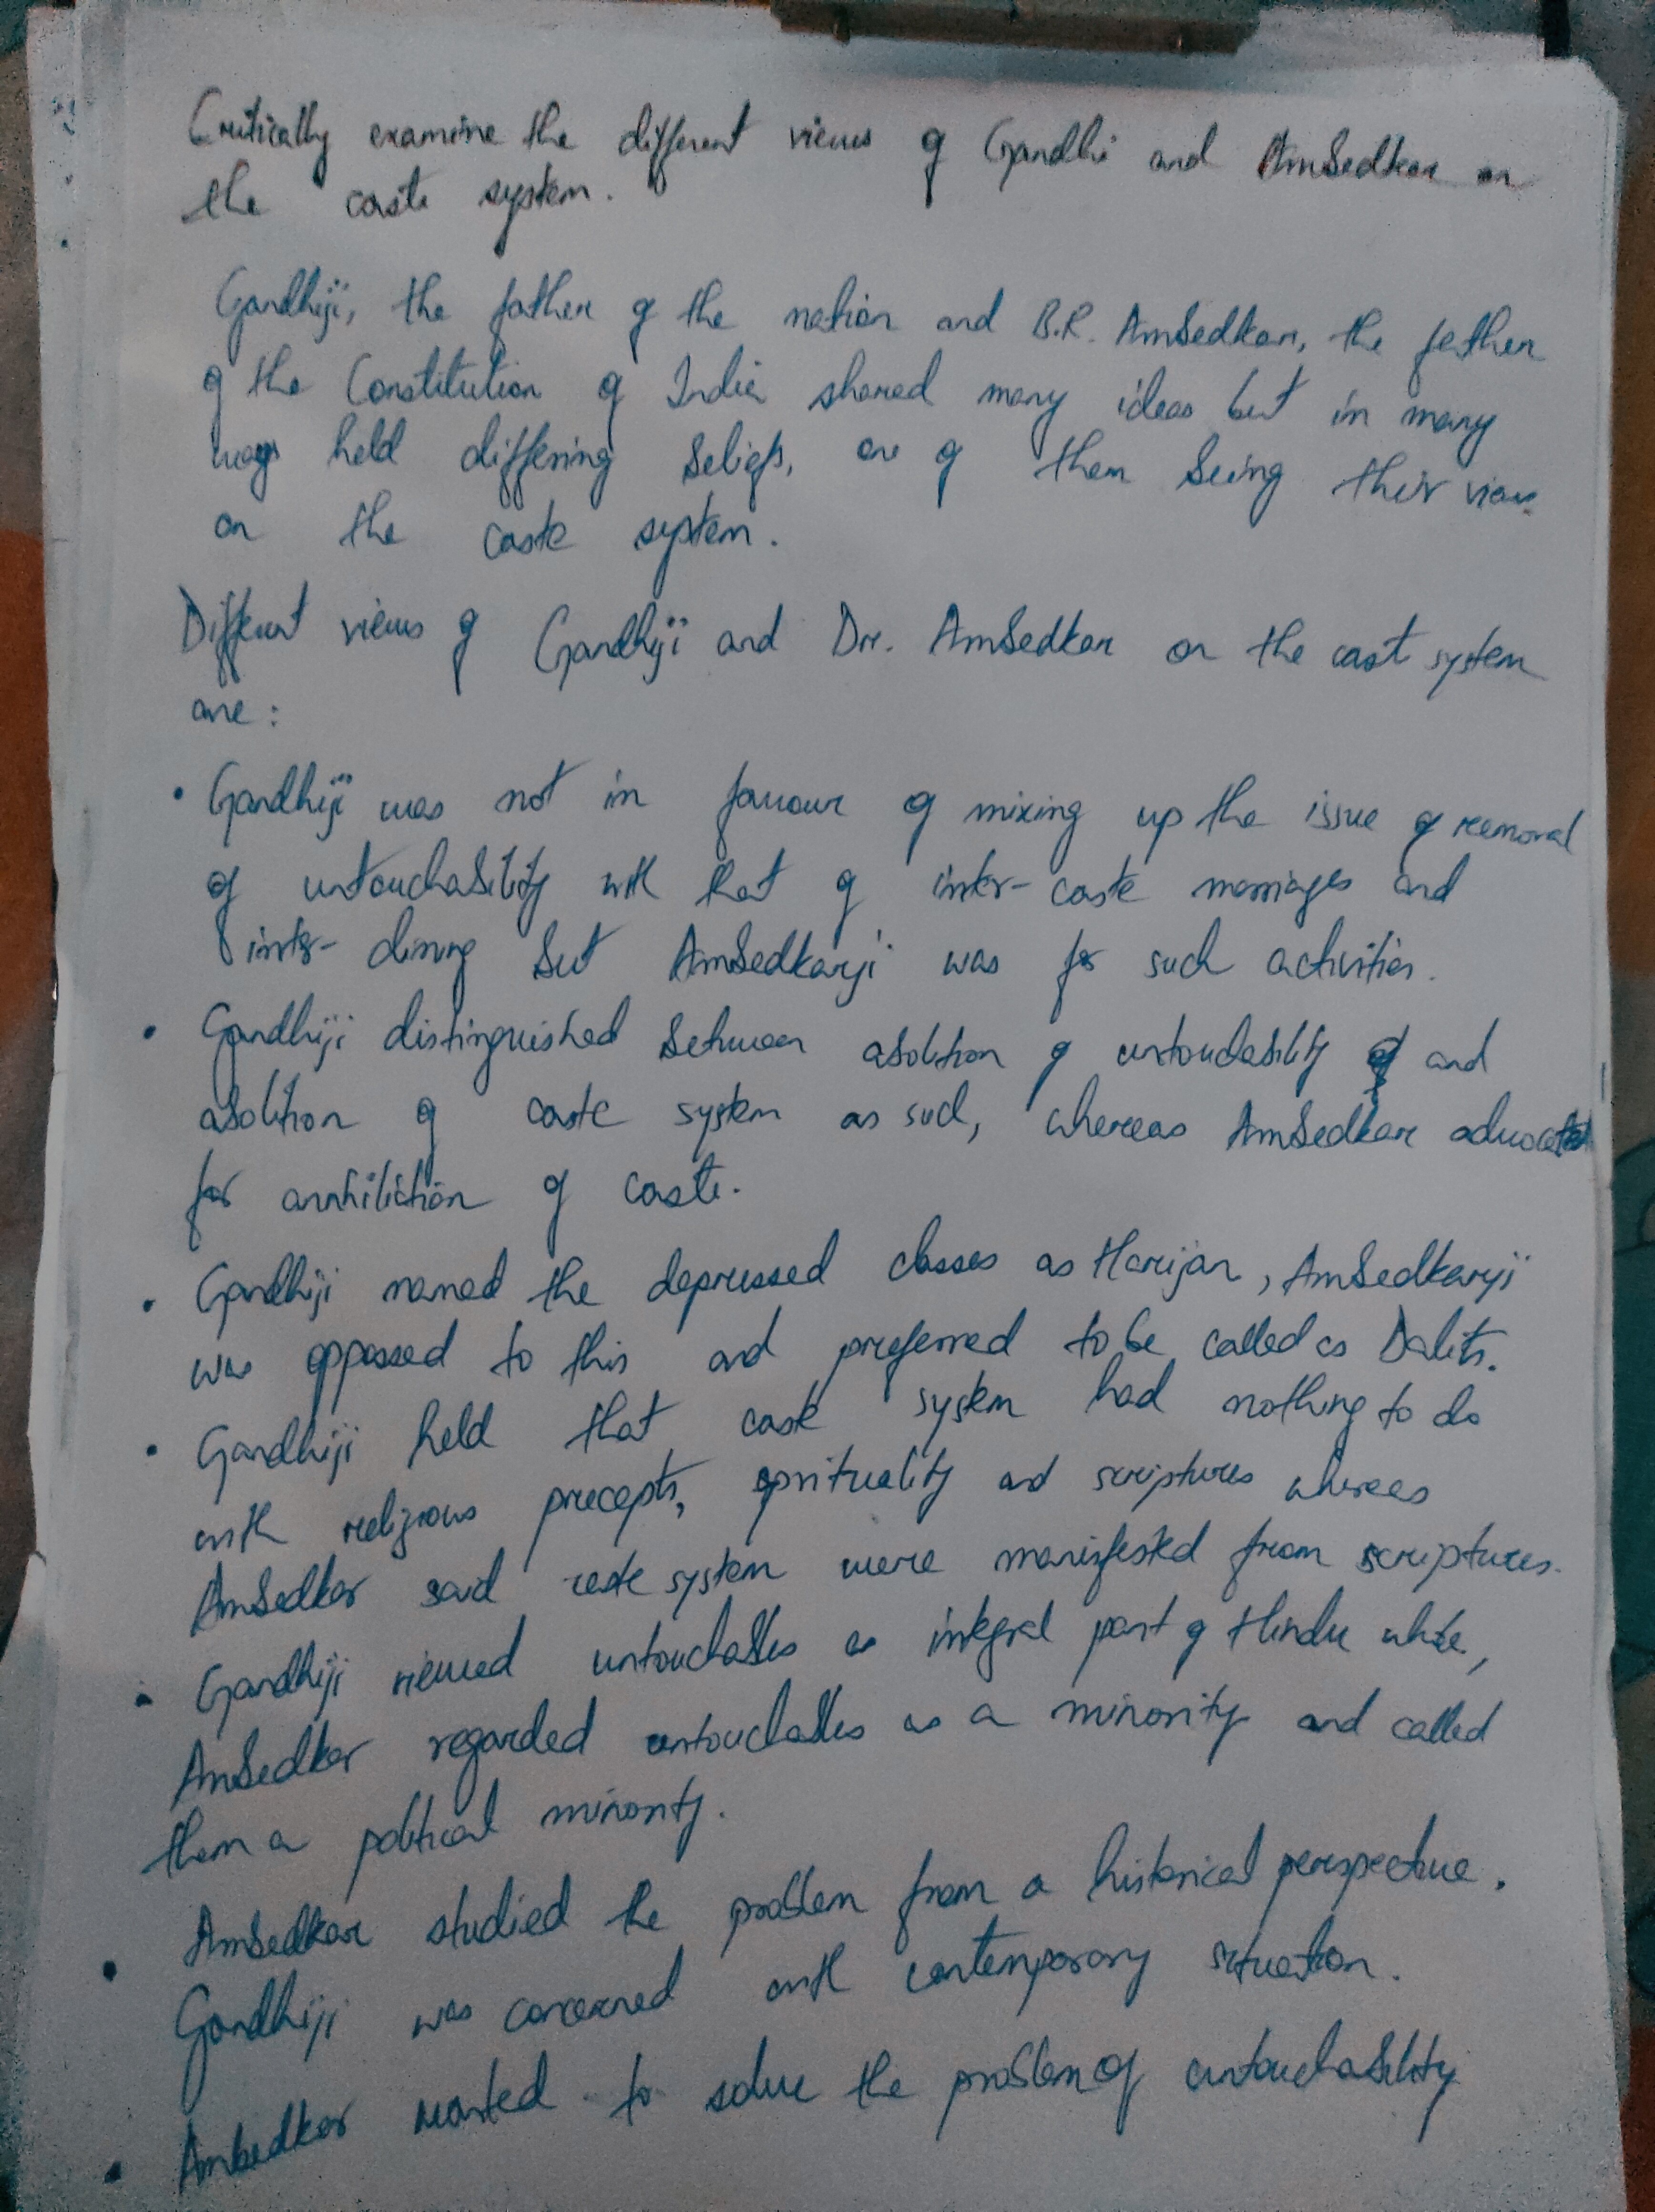 Critically examine the different views of Gandhi and Ambedkar on
the caste system.
Gandhiji, the father of the nation and B.R. Ambedkar, the father
of the Constitution of India shared many ideas but in many
ways held differing beliefs, one of them being their view
on the caste system.
Different views of Gandhiji and Dr. Ambedkar on the cast system
are:
• Gandhiji was not in favour of mixing up the issue of removal
of untouchability with that of inter-caste marriages and
inter-dining but Ambedkarji was for such activities.
• Gandhiji distinguished between abolition of untouchability and
abolition of caste system as such, whereas Ambedkar advocated
for annhilation of caste.
• Gandhiji named the depressed classes as Harijan, Ambedkarji
was oppossed to this and preferred to be called as Dalits.
• Gandhiji held that caste system had nothing to do
with religious precepts, sprituality and scriptures whereas
Ambedkar said caste system were manisfested from scriptures.
• Gandhiji viewed untouchables as integral part of Hindu while,
Ambedkar regarded untouchables as a minority and called
them a political minority.
• Ambedkar studied the problem from a historical perspective.
Gandhiji was concerned with contemporary situation.
• Ambedkar wanted to solve the problem of untouchability